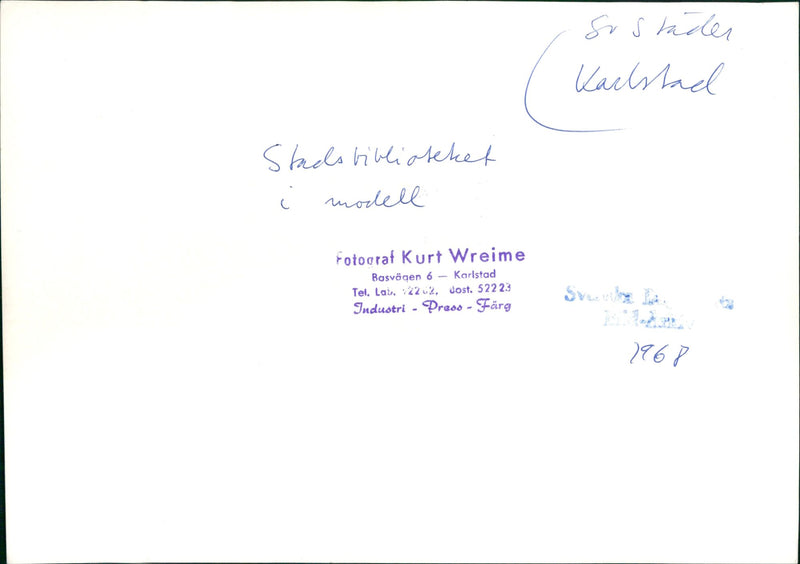 Sv Städer
Karlstad
Stadsbiblioteket
i modell
Fotograf Kurt Wreime
Basvägen 6 — Karlstad
Tel. Lab. Bost. 52223
Industri - Press - Färg
Svenska
1968